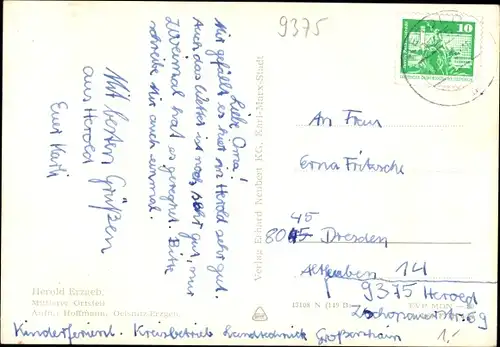 9375
Liebe Oma!
Mir gefällt es hier in Herold sehr gut.
Auch das Wetter ist noch sehr gut, nur
zweimal hat es geregnet. Bitte
schreibe mir auch einmal.
Mit besten Grüßen
aus Herold
Euer
10
An Frau
Erna Fritzsche
45
8045 Dresden
Altleuben 14
9375 Herold
Zschopauerstr. 69
Verlag Erhard Neubert KG, Karl-Marx-Stadt
Herold Erzgeb.
Mittlerer Ortsteil
Aufn.: Hoffmann, Oelsnitz-Erzgeb.
Kinderferienl. Kreisbetrieb Landtechnick Großenhain
1,-